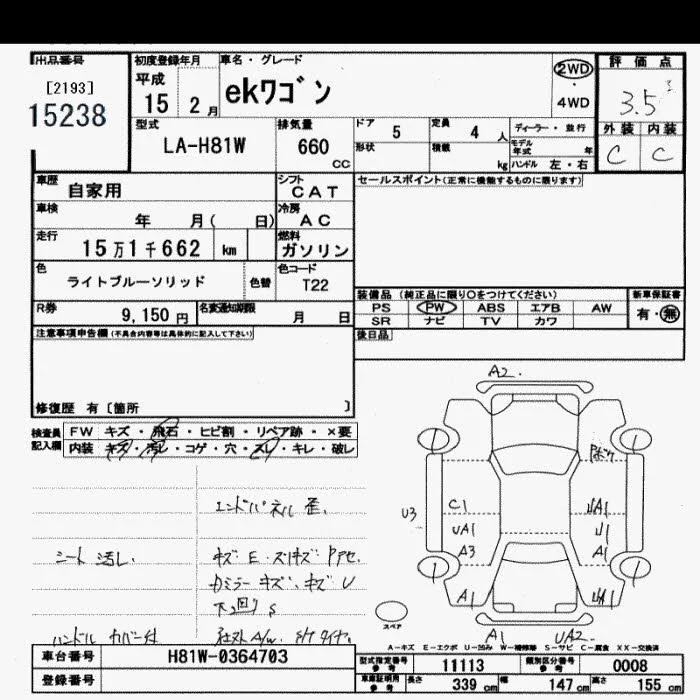 出品番号 初度登録年月 車名・グレード 評価点
[2193] 平成 2WD
15238 15 2月 ekワゴン 4WD 3.5
型式 排気量 ドア 5 定員 4人 ディーラー・並行 外装 内装
LA-H81W 660 CC 形状 積載 kg モデル年式 年 C C
ハンドル 左・右
車歴 自家用 シフト CAT セールスポイント(正常に機能するものに限ります)
車検 年 月( 日) 冷房 AC
走行 15万1千662 km 燃料 ガソリン
色 ライトブルーソリッド 色替 色コード T22
装備品(純正品に限り○をつけてください) 新車保証書
R券 9,150円 名変通知期限 月 日 PS PW ABS エアB AW 有・無
SR ナビ TV カワ
注意事項申告欄(不具合内容等は具体的に記入して下さい) 後日品
修復歴 有〔箇所 〕
検査員記入欄 FW キズ・飛石・ヒビ割・リペア跡・×要
内装 キズ・汚レ・コゲ・穴・スレ・キレ・破レ
A2.
U3 C1 UA1 A3 A1
A1 UA2
エンドパネル 歪.
シート 汚し.
ハンドル カバー付
スペア
A-キズ E-エクボ U-凹み W-補修跡 S-サビ C-腐食 XX-交換済
車台番号 H81W-0364703 型式指定番号 参考 11113 類別区分番号 参考 0008
登録番号 車庫証明用 参考 長さ 339 cm 幅 147 cm 高さ 155 cm